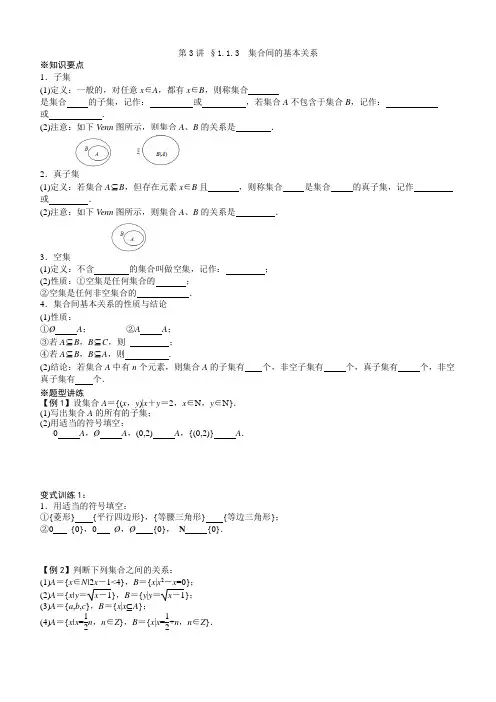 第3讲 §1.1.3 集合间的基本关系
※知识要点
1．子集
(1)定义：一般的，对任意 x∈A，都有 x∈B，则称集合______
是集合____的子集，记作：________或________，若集合 A 不包含于集合 B，记作：__________
或______．
(2)注意：如下 Venn 图所示，则集合 A、B 的关系是______．
B A 或 B(A)
2．真子集
(1)定义：若集合 A⊆B，但存在元素 x∈B 且______，则称集合____是集合____的真子集，记作________
或______．
(2)注意：如下 Venn 图所示，则集合 A、B 的关系是______．
B A
3．空集
(1)定义：不含______的集合叫做空集，记作：______；
(2)性质：①空集是任何集合的______；
②空集是任何非空集合的________．
4．集合间基本关系的性质与结论
(1)性质：
①Ø____A； ②A____A；
③若 A⊆B，B⊆C，则______；
④若 A⊆B，B⊆A，则________．
(2)结论：若集合 A 中有 n 个元素，则集合 A 的子集有____个，非空子集有____个，真子集有____个，非空
真子集有____个．
※题型讲练
【例1】设集合 A＝{(x，y)|x＋y＝2，x∈N，y∈N}．
(1)写出集合 A 的所有的子集；
(2)用适当的符号填空：
0____A，Ø____A，(0,2)____A，{(0,2)}____A．
变式训练1：
1．用适当的符号填空：
①{菱形}___{平行四边形}，{等腰三角形}___{等边三角形}；
②0___{0}，0___Ø，Ø___{0}， N____{0}．
【例2】判断下列集合之间的关系：
(1)A＝{x∈N|2x－1<4}，B＝{x|x²－x=0}；
(2)A＝{x|y＝√x－1}，B＝{y|y＝√x－1}；
(3)A＝{a,b,c}，B＝{x|x⊆A}；
(4)A＝{x|x=1/2n，n∈Z}，B＝{x|x=1/2+n，n∈Z}．